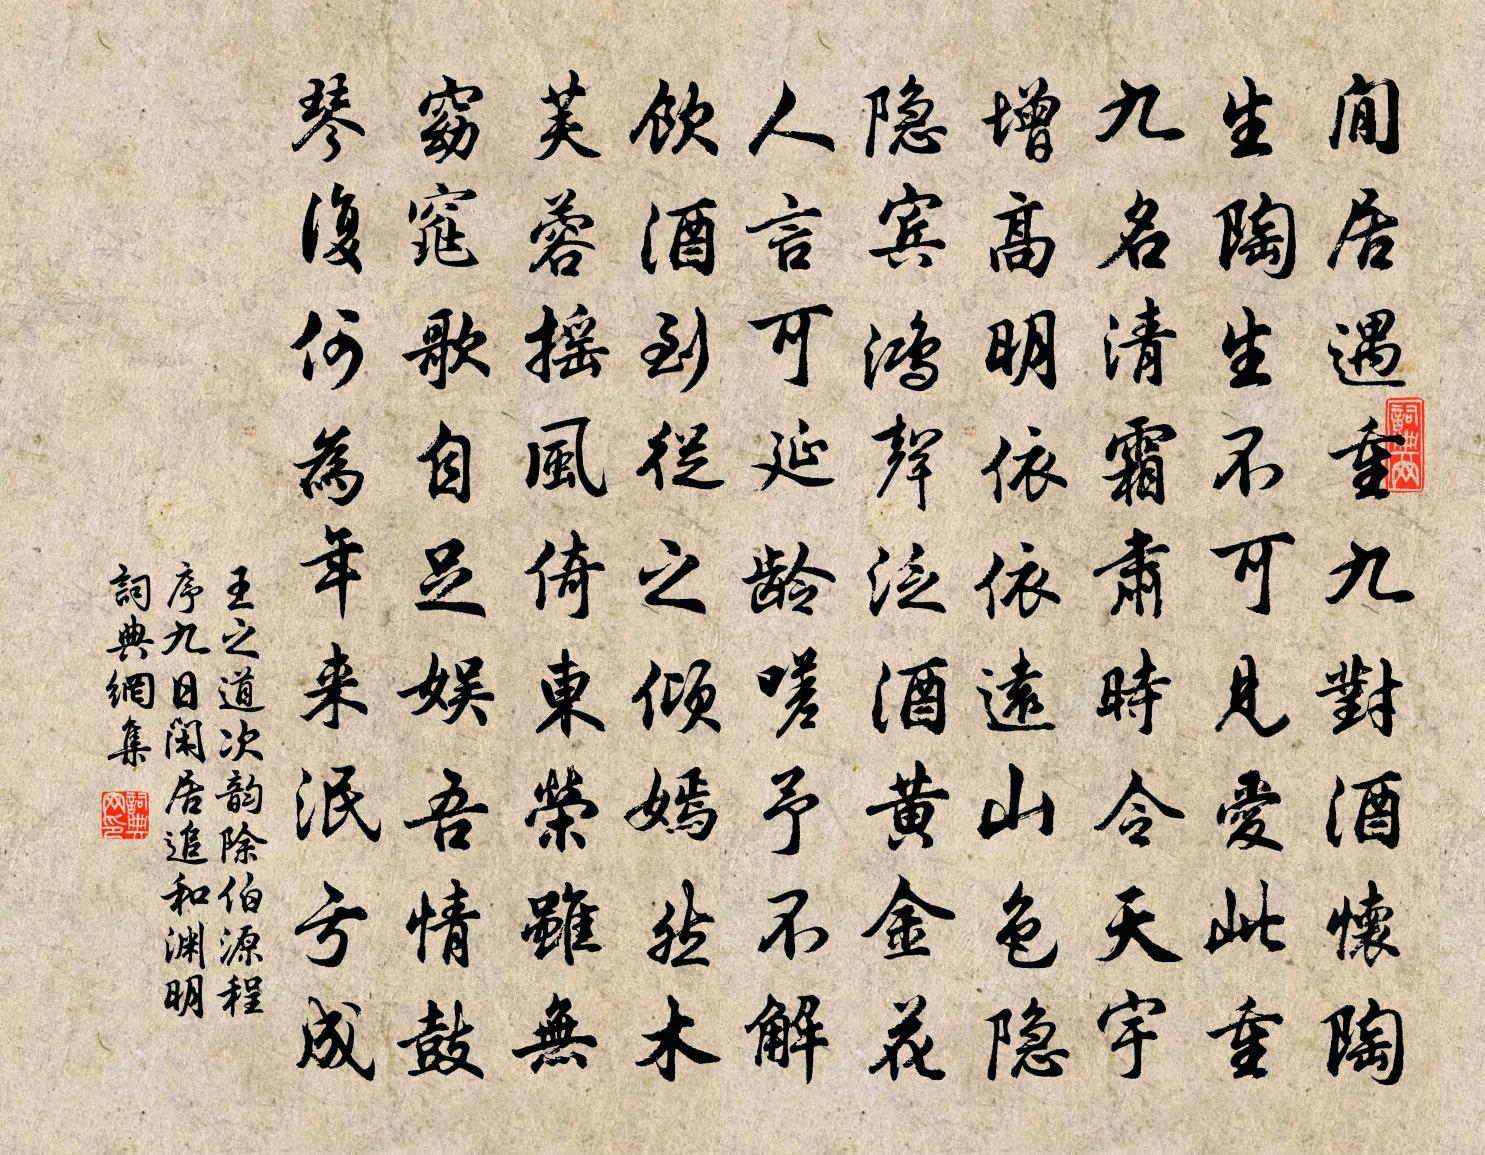 閒居遇重九對酒懷陶
生陶生不可見愛此重
九名清霜肅時令天宇
增高明依依遠山色隐
隐宾鸿聲泛酒黄金花
人言可延龄嗟予不解
飲酒到從之傾嫣然木
芙蓉摇風倚東榮雖無
窈窕歌自足娱吾情鼓
琴復何為年来泯亏成
王之道次韵除伯源程
序九日閑居追和渊明
詞典網集
詞典网
詞典网印